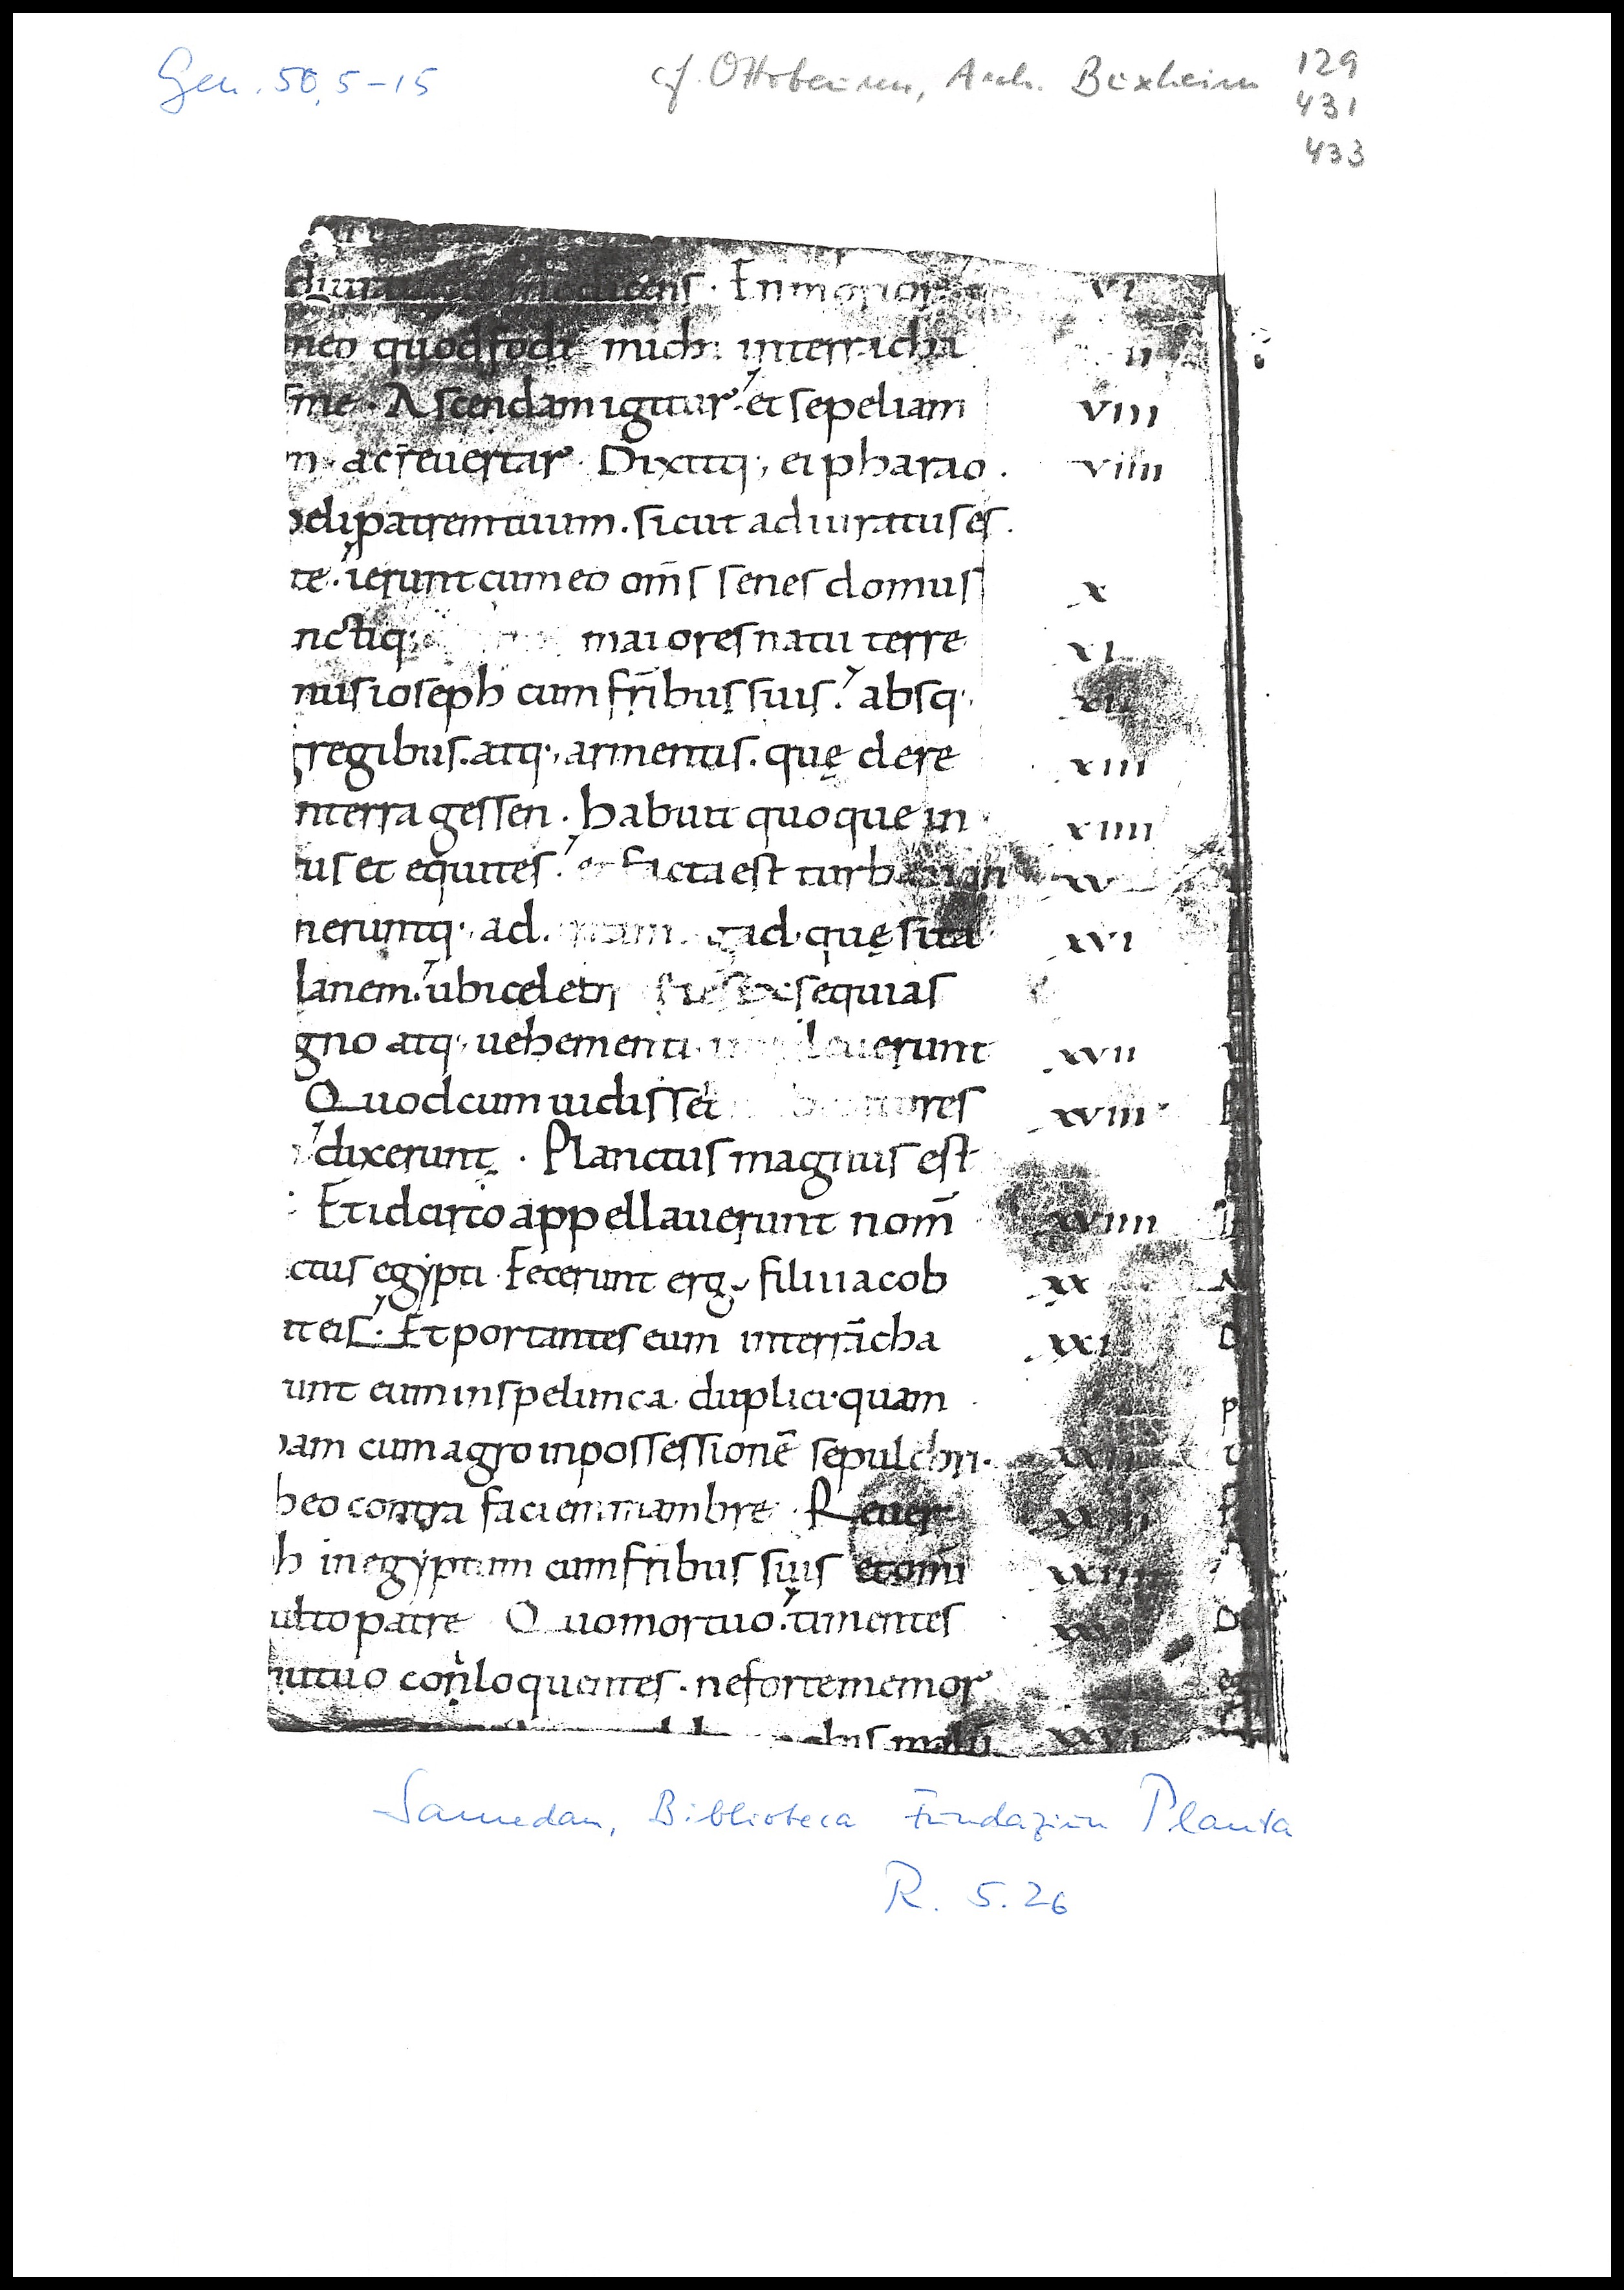 Gen. 50,5-15
cf. Ottobeuren, Arch. Buxheim 129
431
433
dicens · En morior vi
neo quod fodi michi in terra cha ii
me · Ascendam igitur et sepeliam viii
m · ac reuertar · Dixitq; ei pharao . viiii
peli patrem tuum . sicut adiuratus es .
te . ierunt cum eo om̄s senes domus x
nctiq; maiores natu terre xi
nus ioseph cum fr̄ibus suis . absq; xii
gregibus . atq; armentis . quę dere xiii
n terra gessen . habuit quoque in xiiii
us et equites . et facta est turba non xv
neruntq; ad gad . quę sita xvi
danem . ubi celebr exsequias
gno atq; uehementi leuerunt xvii
Quod cum uidisse tores xviii
dixerunt . Planctus magnus est
Et idcirco appellauerunt nom̄ xviiii
ctus egypti . Fecerunt ergo filii iacob xx
it eis . Et portantes eum in terrā cha xxi
unt eum in spelunca duplici . quam
ham cum agro in possessionē sepulchri . xxii
heo contra faciem mambre . Reuer xxiii
h in egyptum cum fribus suis et omi xxiiii
ulto patre Quo mortuo . timentes xxv
utuo conloquentes . ne forte memor
malū xxvi
Samedan, Biblioteca Fundaziun Planta
R. 5.26